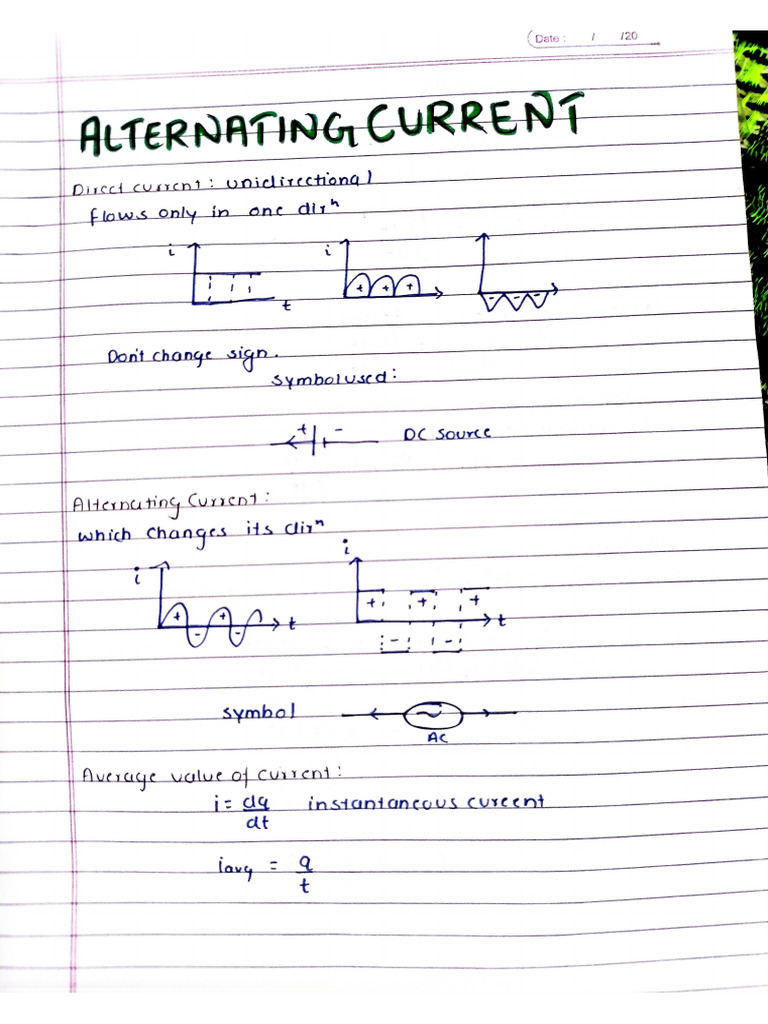 Date : / /20
ALTERNATING CURRENT
Direct current : unidirectional
flows only in one dirⁿ
i i
+ + +
- - -
t
Don't change sign.
symbol used :
+ - DC source
Alternating Current :
which changes its dirⁿ
i i
+ + + + +
t t
- - - -
symbol ~
AC
Average value of current :
i = dq/dt instantaneous cureent
iavg = q/t